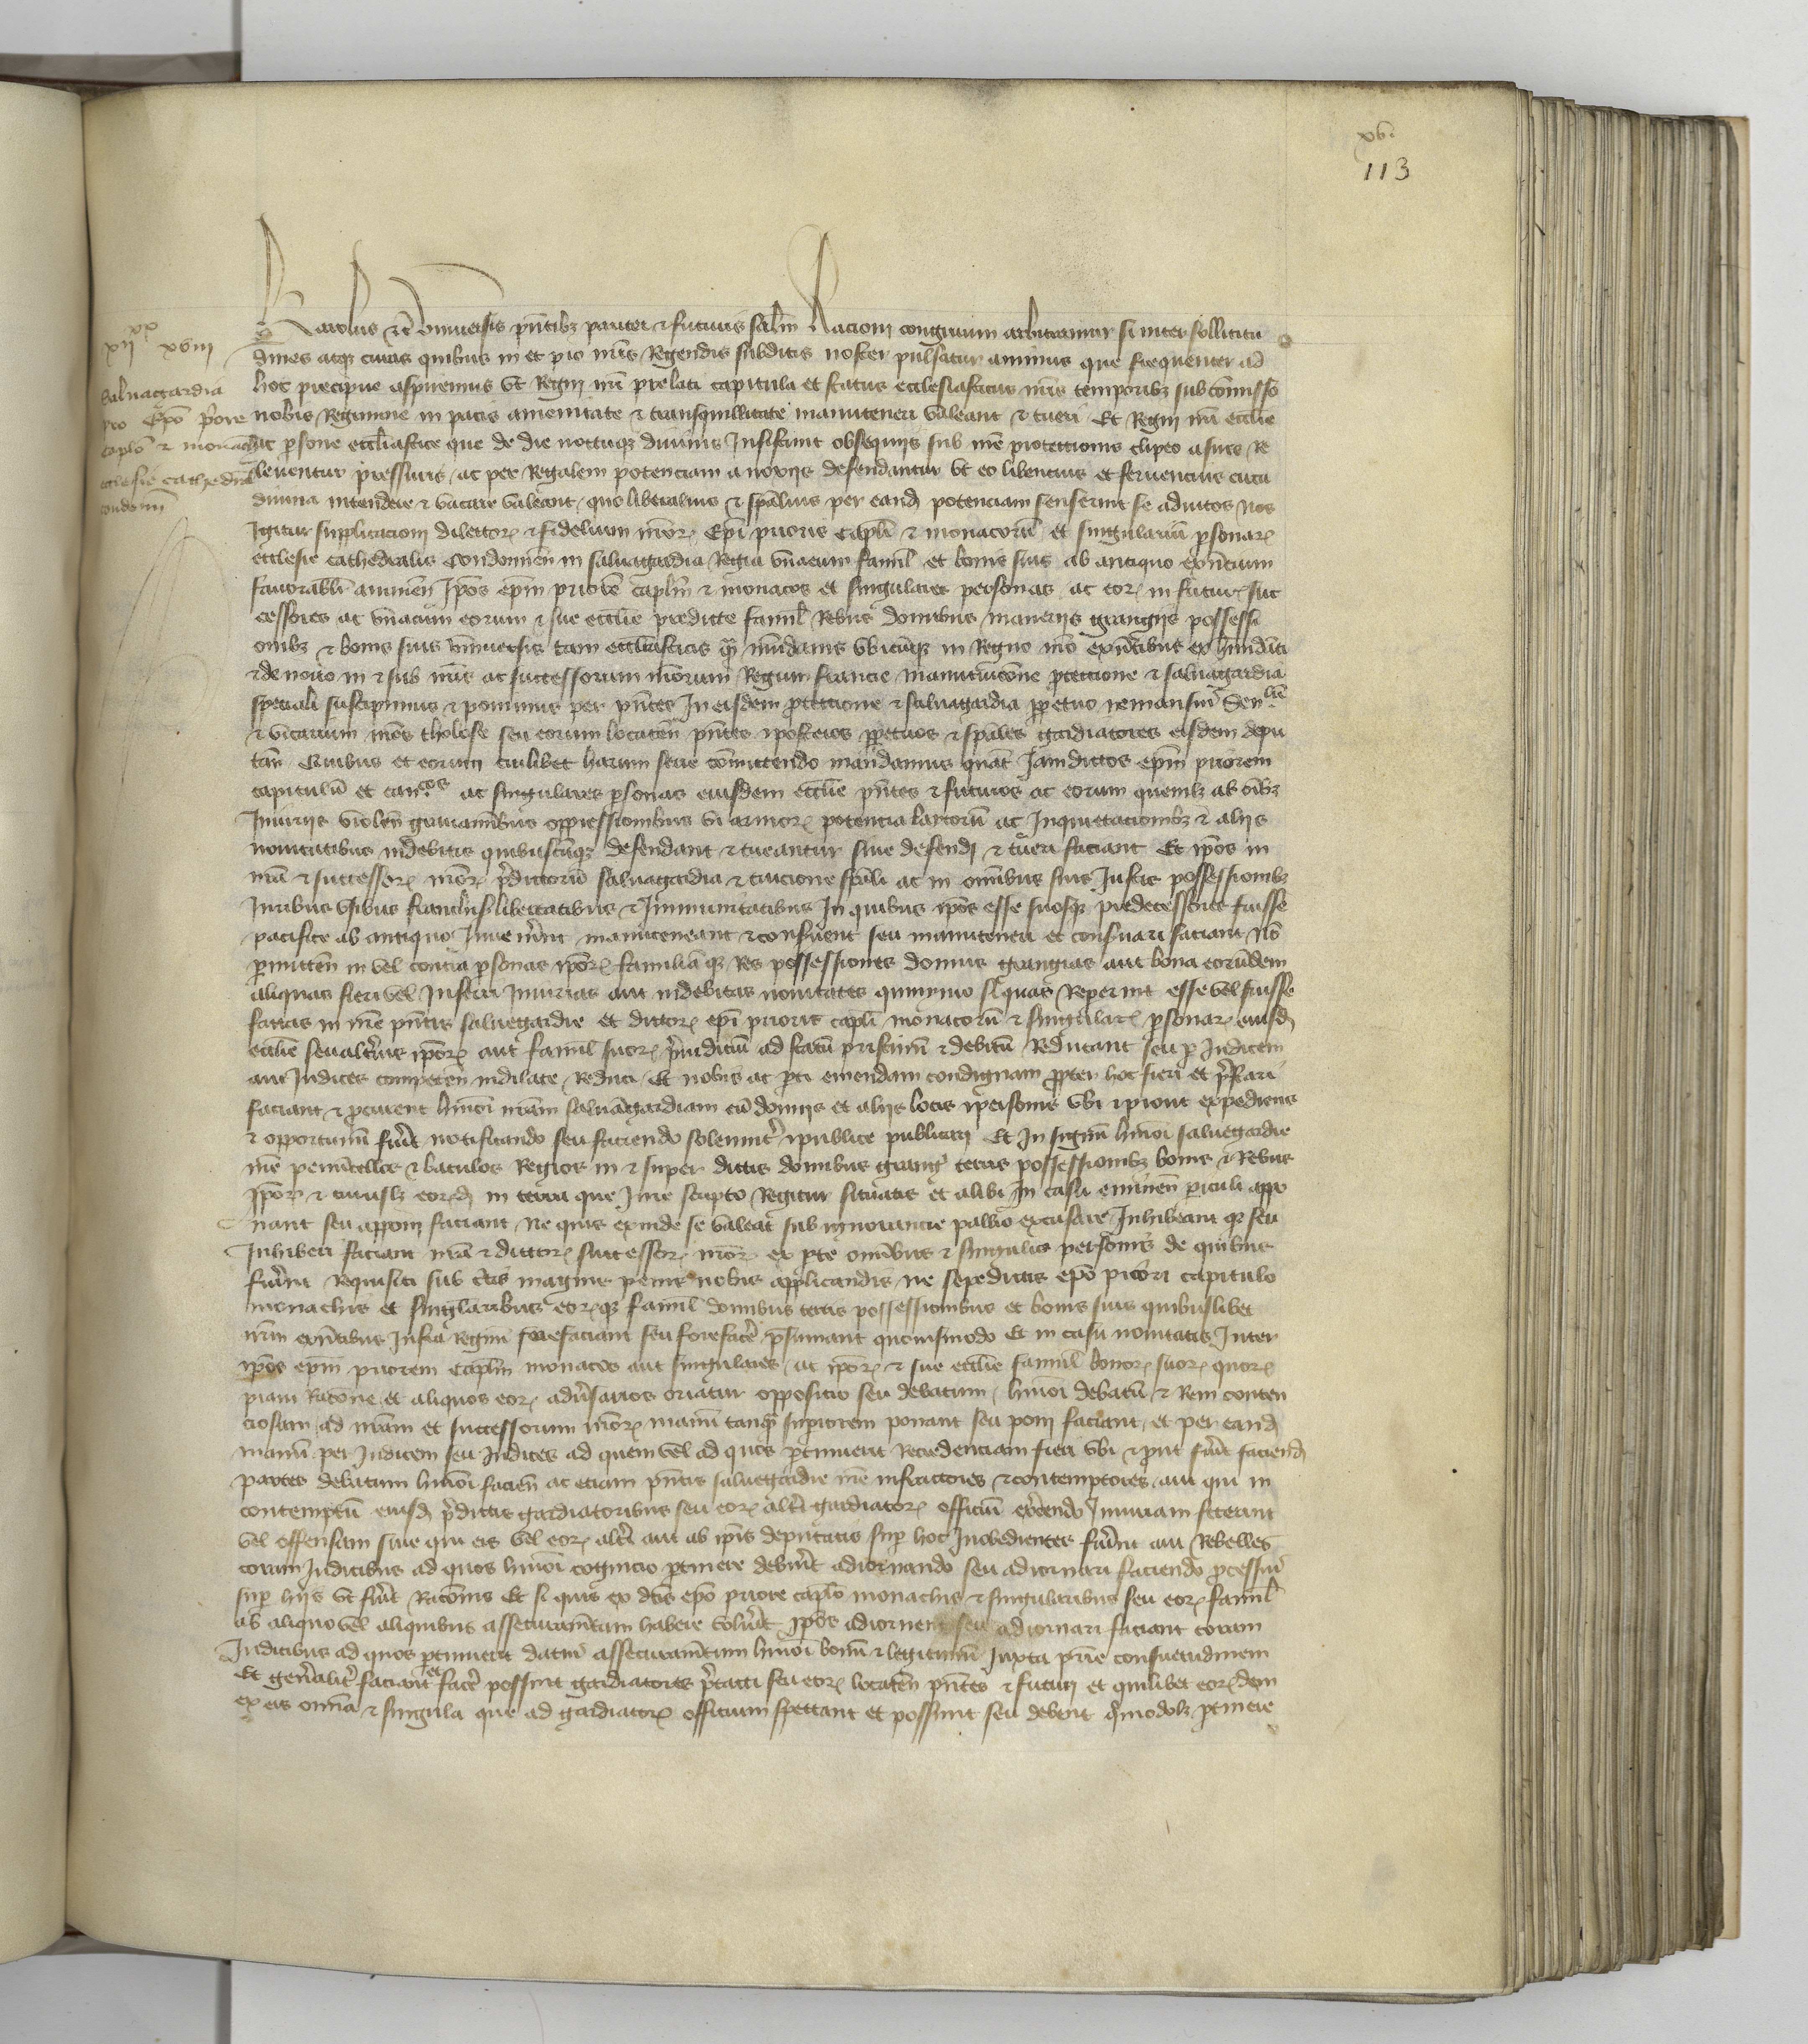 xvi
113
xii xx xviii
Salvagardia
pro Epo priore
caplo & monachis
ecclesie cathedral
condomii
Karolus etc universis pntibz pariter & futuris saltm Racioni congruum arbitramur si inter sollicitu
dines atqz curas quibus in et pro nris Regendis subditis noster pulsatur animus que frequenter ad
hoc precipue aspiremus ut Regni nri prelati capitula et status ecclesiasticus nris temporibz sub comisso
nobis Regimine in pacis amenitate & transquillitate manuteneri valeant & tueri Et Regni nri ecclie
hac psone eccliastice que de die nottuqz divinis Insistunt obsequiis sub nre protectionis clipeo a suis Re
leventur pressuris ac per Regalem potenciam a noxiis defendantur ut eo libencius et fervencius circa
divina intendere & vacare valeant quo liberalius & spalius per eand potenciam senserint se adiutos Nos
Igitur supplicacioni dilector & fidelium nror Epi prioris capli & monacorum et singularium psonar
ecclesie cathedralis Condomien in salvagardia Regia unacum famil et bonis suis ab antiquo exntium
favorabilr annuen Ipos epm priore caplm & monacos et singulares personas ac eor in futur suc
cessores ac unacum eorum & sue ecclie predicte famil Rebus domibus maneriis grangiis possessi
onibz & bonis suis universis tam eccliasticis qm mundanis ubicuqz in Regno nro exntibus ex habundanti
& de novo in & sub nris ac successorum nrorum Regum francie manutencione proteccione & salvagardia
speciali suscipimus & ponimus per pntes In eisdem protectione & salvagardia ppetuo remansur Senllm
& vicarium nros tholose seu eorum locaten pntes & posteros ppetuos & spales gardiatores eisdem depu
tan Quibus et eorum cuilibet harum serie comittendo mandamus qnat Jamdictos epm priorem
capitulu et canoos ac singulares psonas eiusdem ecclie pntes & futuros ac eorum quemlz ab oibz
Iniuriis violen gravaminibus oppressionibus vi armor potencia laycorum ac Inquietacionibz & aliis
novitatibus indebitis quibuscuqz defendant & tueantur sive defendi & tueri faciant Et ipos in
nra & successor nror pdictoru salvagardia & tuicione spali ac in omnibus suis Iustis possessionibz
Iuribus usibus franchis libertatibus & Immunitatibus In quibus ipos esse suosqz predecessores fuisse
pacifice ab antiquo Invenerint manuteneant & conservent seu manuteneri et conservari faciant No
pmitten in vel contra psonas ipor familia qz Res possessiones domus grangias aut bona eorumdem
aliquas fieri vel Inferri Iniurias aut indebitas novitates quinymo si quas Repperint esse vel fuisse
factas in nre pntis salvegardie et dictor epi prioris capli monacoru & singular psonar eiusd
ecclie seu alterius ipor aut famil suor preiudicium ad statu pristinu & debitu Reducant seu p Iudicem
aut Iudices competen indilate Reduci Et nobis ac parti emendam condignam propter hoc fieri et prestari
faciant & procurent hmoi nram salvagardiam cu domiis et aliis locis & personis ubi & prout expediens
& opportunu fuerit notificando seu faciendo solenniter & publice publicari Et In signu hmoi salvegardie
nre penuncellos & baculos Regios in & super dictis domibus grang terris possessionibz bonis & Rebus
Ipor & cuiuslz eord in terra que Iure scripto Regitur situatis et alibi In casu eminen periculi appo
nant seu apponi faciant Ne quis exinde se valeat sub ignorancie pallio excusare Inhibeant qz seu
Inhiberi faciant nra & dictor successor nror ex parte omnibus & singulis personis de quibus
fuerint Requisiti sub certis magnis penis nobis applicandis ne sepedictis epo priori capitulo
monachis et singlaribus eorqz famil domibus terris possessionibus et bonis suis quibuslibet
urm exntibus Infra Regnu forefaciant seu forefacere psumant quovismodo Et in casu novitatis Inter
ipos epm priorem Caplm monacos aut singulares ac ipor & sue ecclie famil bonor suor quor
piam Racione et aliquos eor adversarios oriatur oppositio seu debatum hmoi debatu & Rem conten
ciosam ad nram et successorum nror manu tanqm supiorem ponant seu poni faciant et per eand
manu per Iudicem seu Iudices ad quem vel ad quos ptinuerit Recredenciam fieri ubi & prout fuerit faciend
partes debatum hmoi facien ac etiam pntis salvegardie nre infractores & contemptores aut qui in
contemptu eiusd predictis gardiatoribus seu eor altri gardiator officiu exercendo Iniuriam fecerint
vel offensam sive qui eis vel eor altri aut ab ipis deputatis sup hoc Inobedientes fuerint aut Rebelles
coram Iudicibus ad quos hmoi cognicio ptinere debuerit adiornando seu adiornari faciendo processur
sup hiis ut fuerit Racionis Et si quis ex dcis epo priore caplo monachis & singularibus seu eor famil
ab aliquo vel aliquibus assecuramentum habere voluerit Ipos adiornent seu adiornari faciant coram
Iudicibus ad quos ptinuerit datur assecuramentum hmoi bonu & legitimu Iuxta prie consuetudinem
Et generaliter faciant et facere possint gardiatores ptacti seu eor locaten pntes & futuri et quilibet eordem
ex eis omnia & singula que ad gardiator officium spectant et possunt seu debent quomodolz ptinere